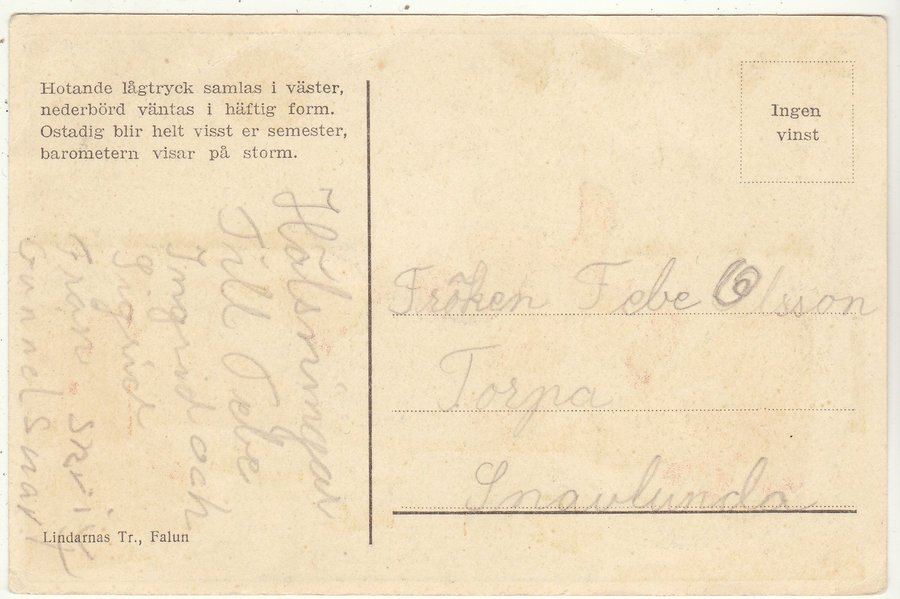 Hotande lågtryck samlas i väster,
nederbörd väntas i häftig form.
Ostadig blir helt visst er semester,
barometern visar på storm.
Ingen
vinst
Hälsningar
Till Febe
Ingrid och
Sigrid
Från
Gunnel
skriv
snart
Fröken Febe Olsson
Torpa
Snavlunda
Lindarnas Tr., Falun